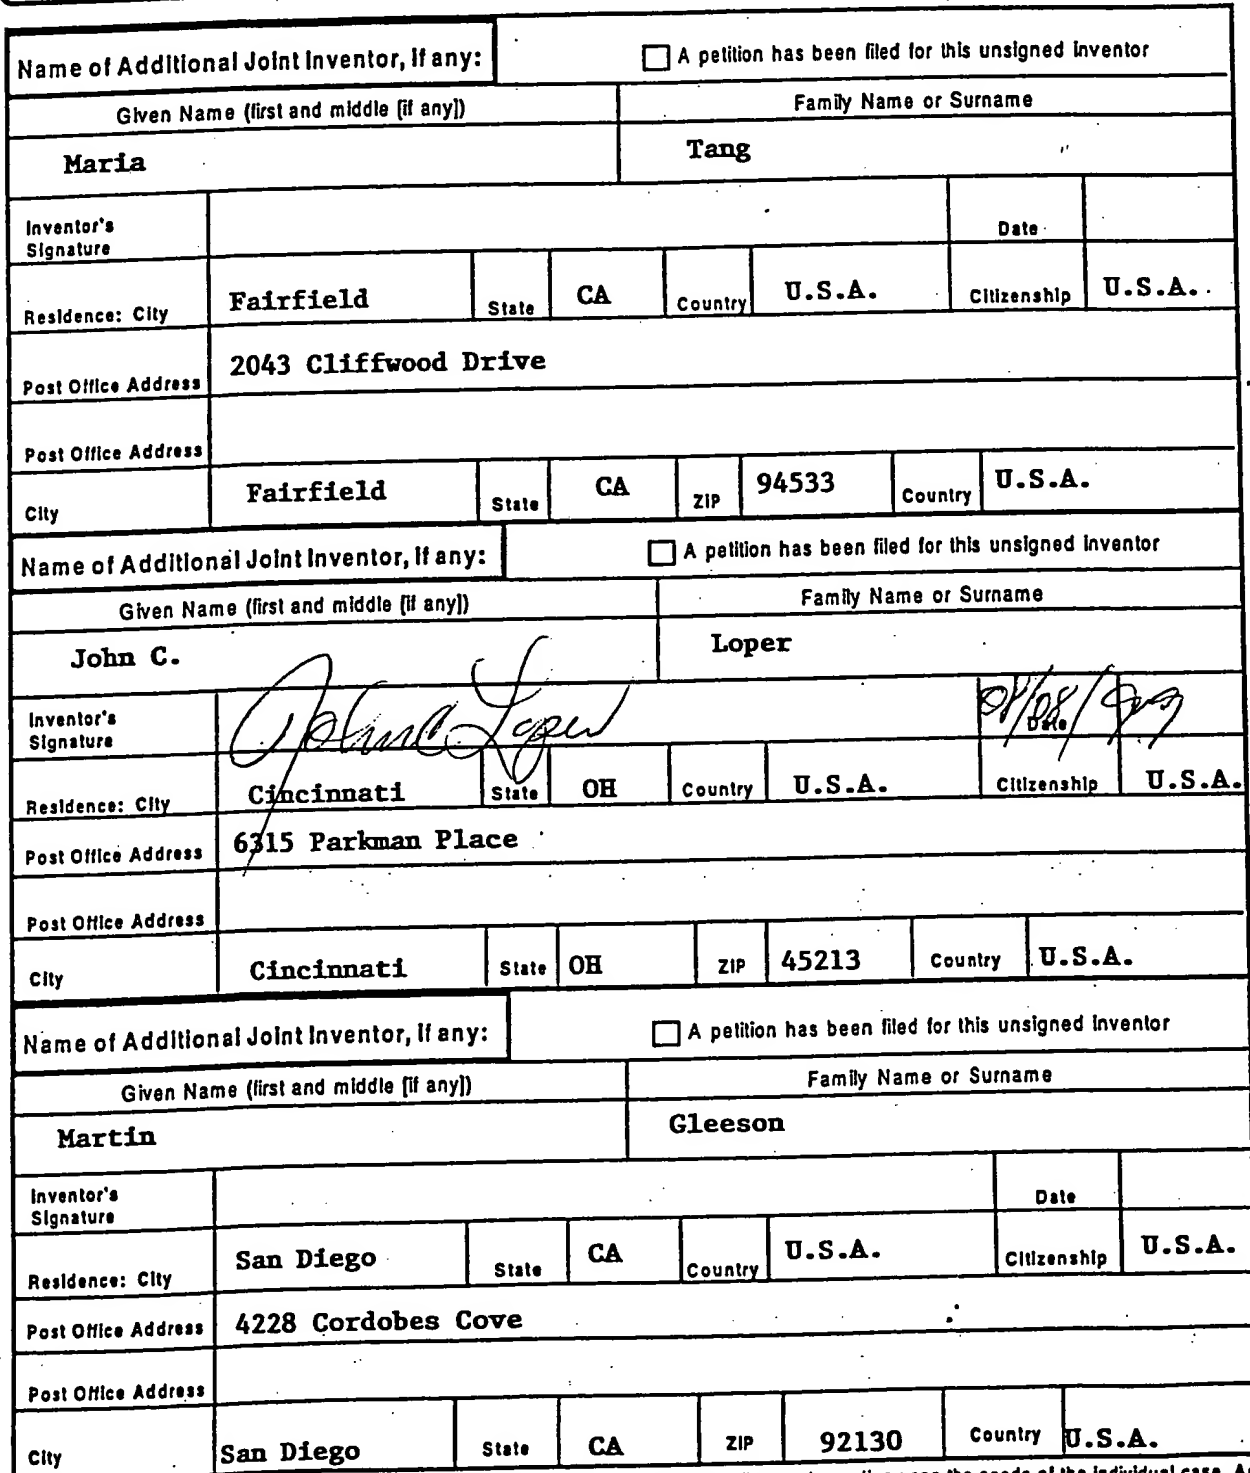 Name of Additional Joint Inventor, if any: A petition has been filed for this unsigned inventor
Given Name (first and middle [if any]) Family Name or Surname
Maria Tang
Inventor's Signature Date
Residence: City Fairfield State CA Country U.S.A. Citizenship U.S.A.
Post Office Address 2043 Cliffwood Drive
Post Office Address
City Fairfield State CA ZIP 94533 Country U.S.A.
Name of Additional Joint Inventor, if any: A petition has been filed for this unsigned inventor
Given Name (first and middle [if any]) Family Name or Surname
John C. Loper
Inventor's Signature John C Loper Date 08/08/
Residence: City Cincinnati State OH Country U.S.A. Citizenship U.S.A.
Post Office Address 6315 Parkman Place
Post Office Address
City Cincinnati State OH ZIP 45213 Country U.S.A.
Name of Additional Joint Inventor, if any: A petition has been filed for this unsigned inventor
Given Name (first and middle [if any]) Family Name or Surname
Martin Gleeson
Inventor's Signature Date
Residence: City San Diego State CA Country U.S.A. Citizenship U.S.A.
Post Office Address 4228 Cordobes Cove
Post Office Address
City San Diego State CA ZIP 92130 Country U.S.A.
the needs of the individual case.